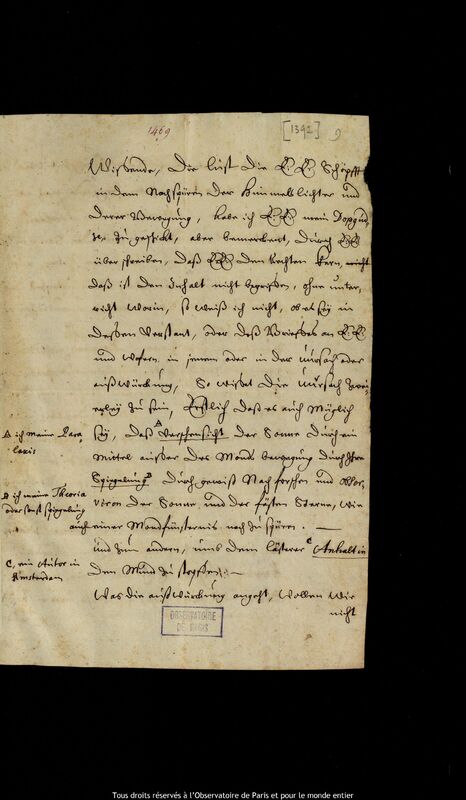 1469
[1392] 9
Wissende, Die lust die EE Schöpfft
in dem Nachspüren der Himmels lichter und
derer Bewegung, habe ich EE mein
zu geschickt, aber bemerckent, durch EE
überschreiben, daß EE den rechten Kern, nicht
daß ist den Inhalt nicht begriffen, ohne unter,
richt worin, so weiß ich nicht, ob es sey in
dessen Verstant, oder deß Brieffes an EE
und wofern in jenem oder in der ursach oder
auß Würckung, So wisset die Ursach zwei
erley zu sein, Erstlich daß es auch Müglich
sey, daß A Verschensicht der Sonne durch ein
Mittel ausser des Mond bewegung durch Ihre
Spiegelung B durch gewiss Nach forschen und Obser,
viren der Sonne und der fästen Sterne, wie
auch einer Mondfünsternis nach zu spüren. —
und zum andern, umb dem lästerer C Anhalt in
den Mund zu stopffen: —
Was die auß Würckung angeht, Wollen Wir
nicht
A ich meine Para-
laxis
B ich meine Theoria
oder sonst spiegelung
C, ein Autor in
Amsterdam
OBSERVATOIRE
DE PARIS
Tous droits réservés à l'Observatoire de Paris et pour le monde entier